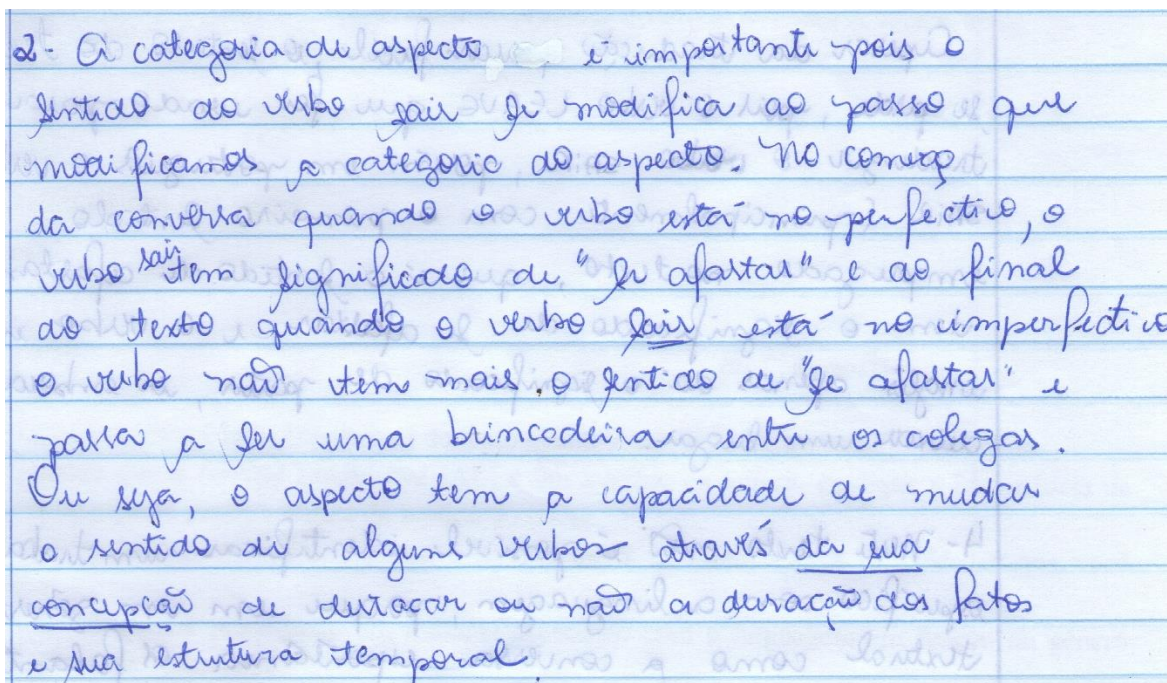 2- A categoria de aspecto é importante pois o
sentido do verbo sair se modifica ao passo que
modificamos a categoria do aspecto. No começo
da conversa quando o verbo está no perfectivo, o
verbo sair tem significado de "se afastar" e ao final
do texto quando o verbo sair está no imperfectivo
o verbo não tem mais o sentido de "se afastar" e
passa a ser uma brincadeira entre os colegas.
Ou seja, o aspecto tem a capacidade de mudar
o sentido de alguns verbos através da sua
concepção de duraçar ou não a duração dos fatos
e sua estrutura temporal.